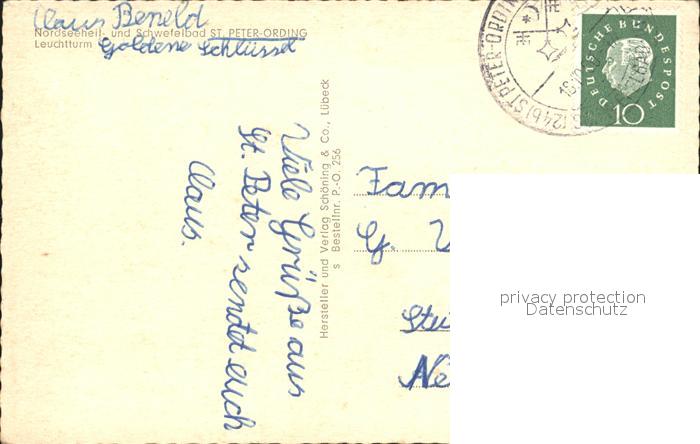 Claus Beneld
Nordseeheil- und Schwefelbad ST. PETER-ORDING
Leuchtturm
Goldene Schlüssel
Hersteller und Verlag Schöning & Co., Lübeck
s Bestellnr. P.-O. 256
Viele Grüße aus
St. Peter sendet euch
Claus.
Fam
Steu
Ne
DEUTSCHE BUNDESPOST
10
(24b) ST. PETER-ORDING
privacy protection
Datenschutz